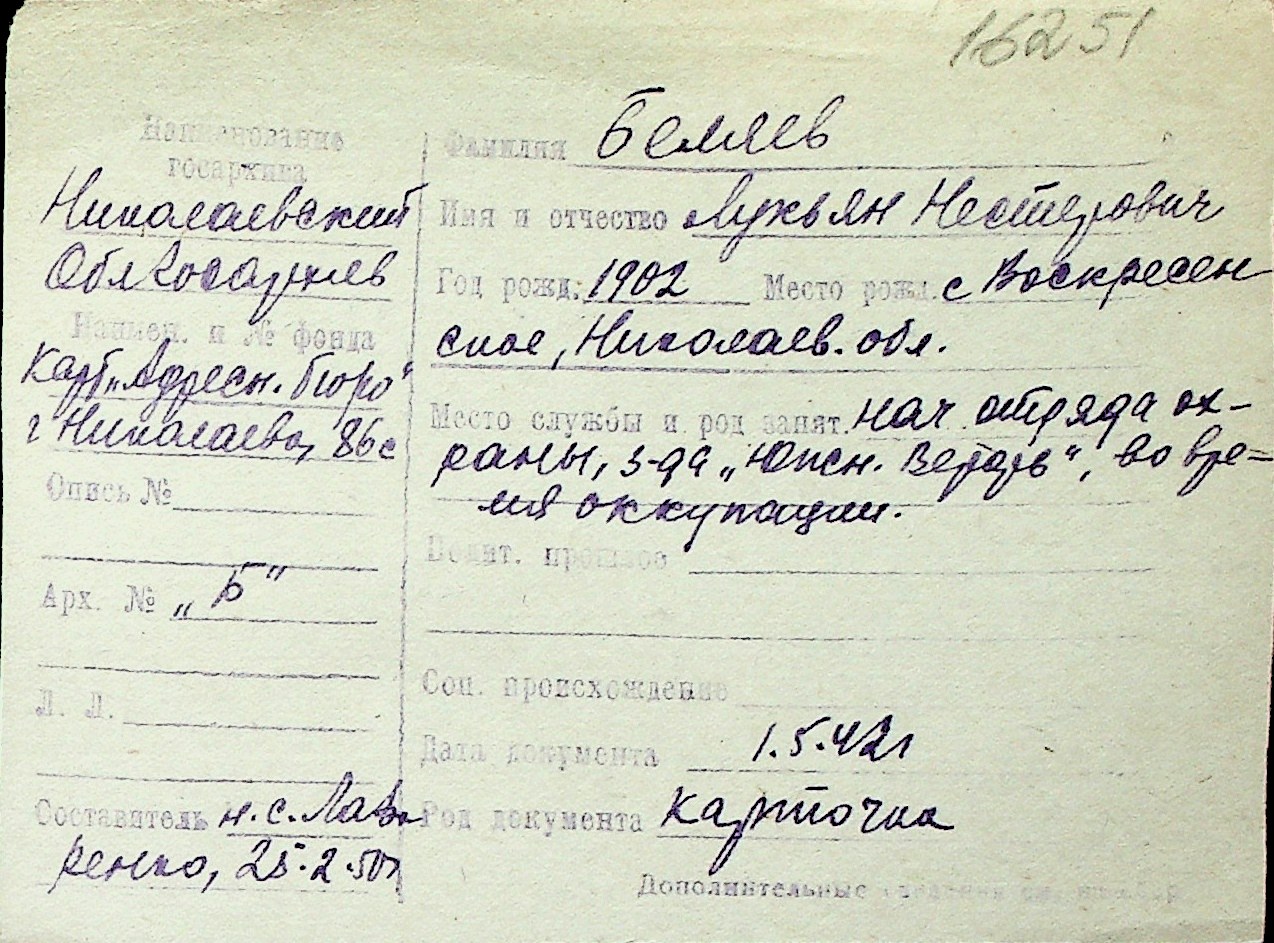 16251
Наименование
госархива
Николаевский
Облгосархив
Наимен. и № фонда
карт. „Адресн. бюро"
г Николаева, 86с
Опись №
Арх. № „Б"
Л. Л.
Составитель н.с. Лав
ренко, 25.2.50г
Фамилия Беляев
Имя и отчество Лукьян Нестерович
Год рожд. 1902 Место рожд. с Воскресен
ское, Николаев. обл.
Место службы и род занят. нач отряда ох-
раны, з-да „Южн. Верфь", во вре-
мя оккупации.
Полит. прошлое
Соц. происхождение
Дата документа 1.5.42г
Род документа карточка
Дополнительные сведения см. на об.